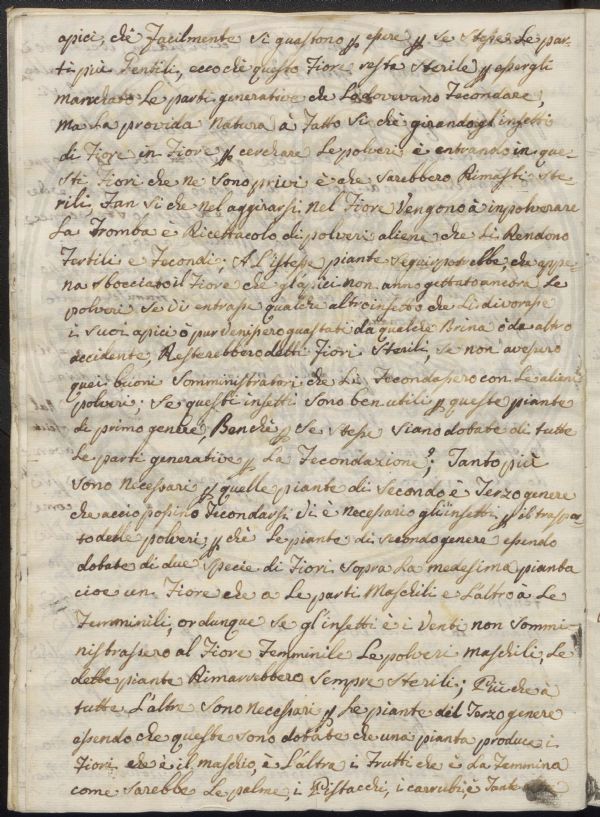 apici, chè Facilmente si guastono p esere p se stesse Le par-
ti più Gentili, ecco chè questo Fiore resta sterile p esergli
manchate Le parti generative che Lo dovevano Fecondare,
Ma La provida Natura à Fatto si chè girando gl'insetti
di Fiore in Fiore p cerchare Le polveri è entrando in que-
sti Fiori che ne sono privi è che sarebbero Rimasti ste-
rili, Fan si che nel aggirarsi nel Fiore Vengono à inpolverare
La Tromba è Ricettacolo di polveri aliene che Li Rendono
Fertili è Fecondi; A L'istesse piante seguir potrebbe, che appe-
na sbocciato il Fiore che gl'apici non anno gettato ancora Le
polveri se Vi entrase qualche altro insetto che Li divorase
i suoi apici ò pur venisero guastati da qualche Brina ò da altro
accidente, Resterebbero detti Fiori sterili, se non avesero
quei buoni somministratori che Li Fecondasero con Le aliene
polveri; se questi insetti sono ben utili p queste piante
di primo genere, Benchè p se stese siano dotate di tutte
Le parti generative p La Fecondazione; Tanto più
sono Necessari p quelle piante di secondo è Terzo genere
che acciò possino Fecondarsi Vi è necessario gl'insetti p il traspor-
to delle polveri p chè Le piante di secondo genere esendo
dotate di due specie di Fiori sopra La medesima pianta
cioe un Fiore che a Le parti Maschili e L'altro à Le
Femminili, or dunque se gl'insetti è i Venti non sommi-
nistrassero al Fiore Femminile Le polveri maschili, Le
dette piante Rimarrebbero sempre sterili; Più che à
tutte L'altre sono Necessari p Le piante del Terzo genere
esendo che queste sono dotate che una pianta produce i
Fiori che è il maschio, è L'altra i Frutti che è La Femmina
come sarebbe Le palme, i Pistacchi, i carrubi, è Tante